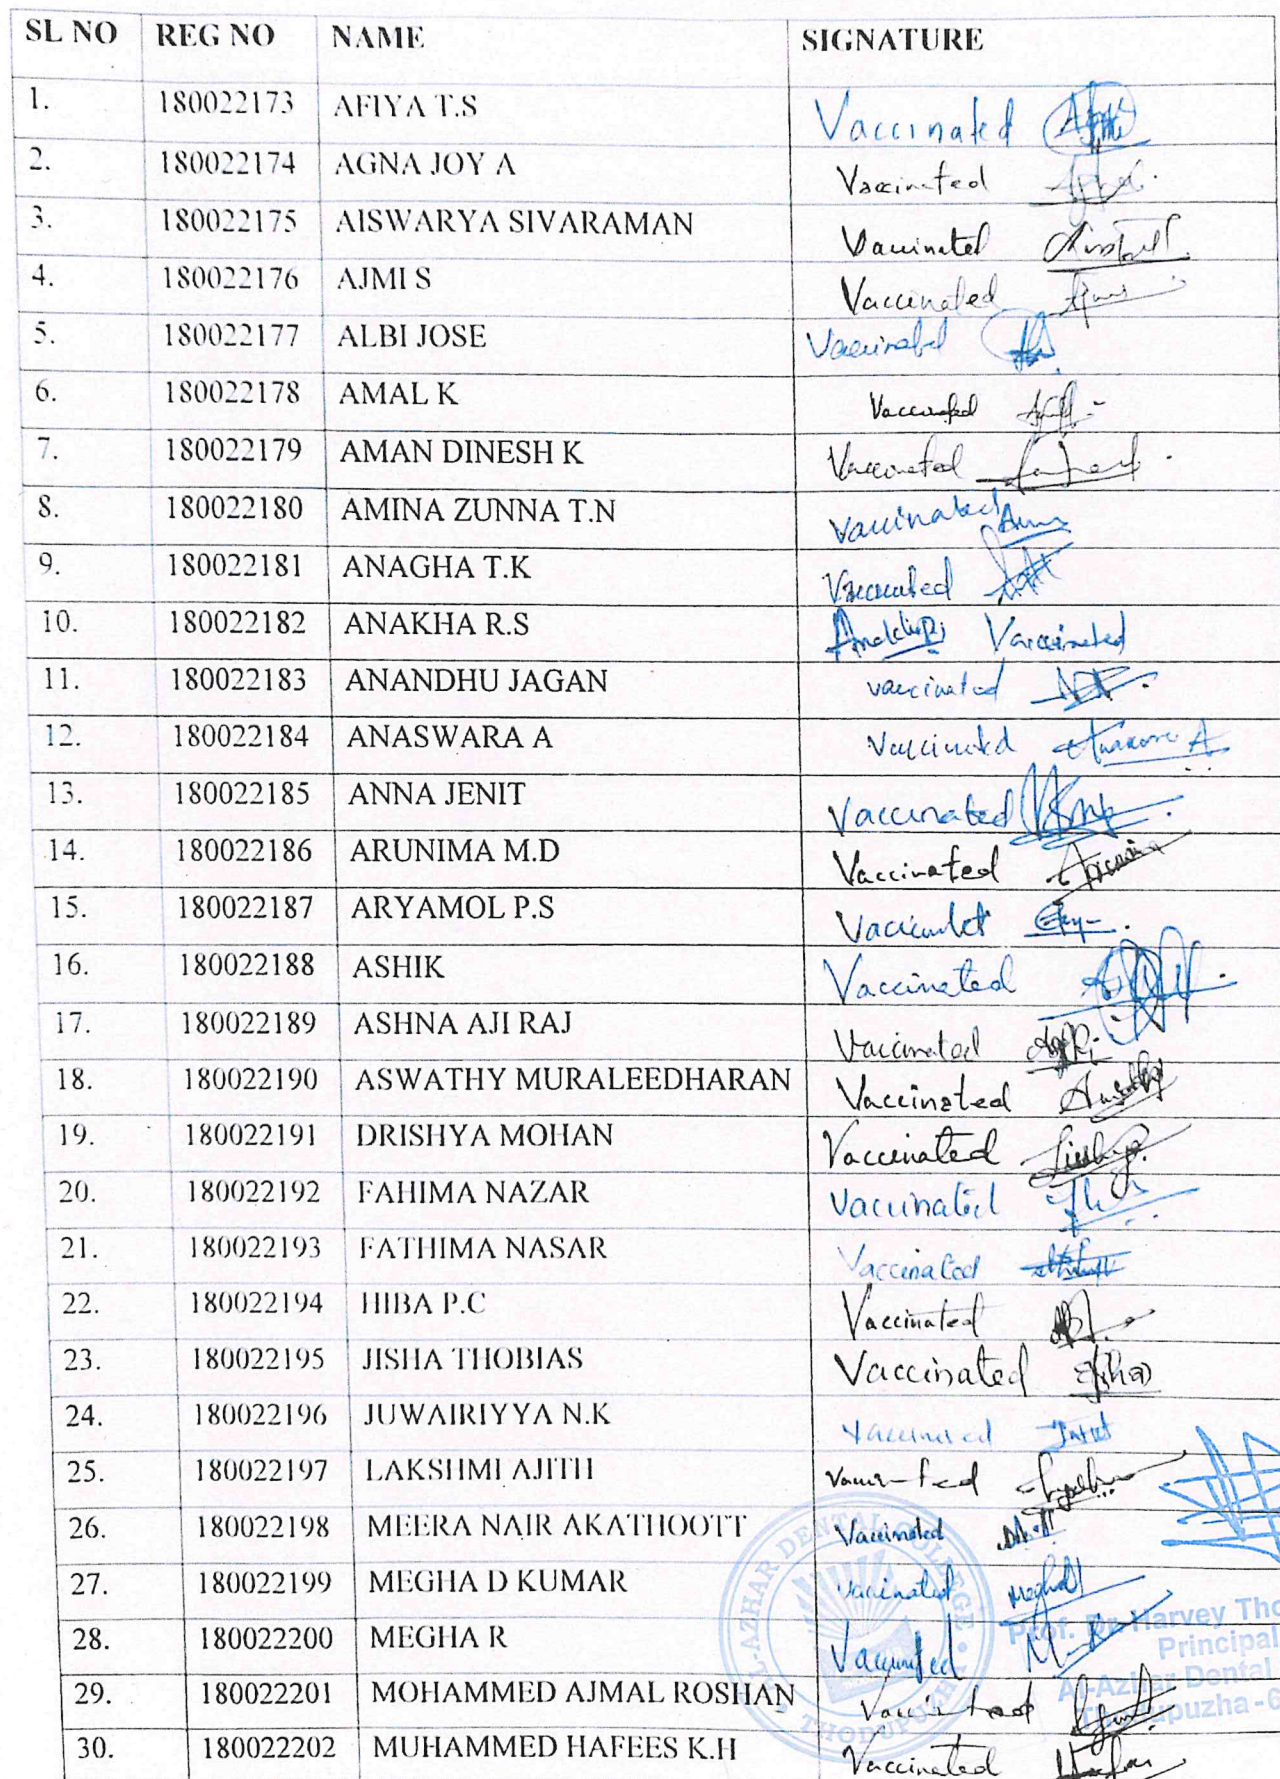 SL NO REG NO NAME SIGNATURE
1. 180022173 AFIYA T.S Vaccinated
2. 180022174 AGNA JOY A Vaccinated
3. 180022175 AISWARYA SIVARAMAN Vaccinated
4. 180022176 AJMI S Vaccinated
5. 180022177 ALBI JOSE Vaccinated
6. 180022178 AMAL K Vaccinated
7. 180022179 AMAN DINESH K Vaccinated
8. 180022180 AMINA ZUNNA T.N Vaccinated
9. 180022181 ANAGHA T.K Vaccinated
10. 180022182 ANAKHA R.S Vaccinated
11. 180022183 ANANDHU JAGAN vaccinated
12. 180022184 ANASWARA A Vaccinated
13. 180022185 ANNA JENIT Vaccinated
14. 180022186 ARUNIMA M.D Vaccinated
15. 180022187 ARYAMOL P.S
16. 180022188 ASHIK Vaccinated
17. 180022189 ASHNA AJI RAJ Vaccinated
18. 180022190 ASWATHY MURALEEDHARAN Vaccinated
19. 180022191 DRISHYA MOHAN Vaccinated
20. 180022192 FAHIMA NAZAR Vaccinated
21. 180022193 FATHIMA NASAR Vaccinated
22. 180022194 HIBA P.C Vaccinated
23. 180022195 JISHA THOBIAS Vaccinated
24. 180022196 JUWAIRIYYA N.K Vaccinated
25. 180022197 LAKSHMI AJITH Vaccinated
26. 180022198 MEERA NAIR AKATHOOTT Vaccinated
27. 180022199 MEGHA D KUMAR Vaccinated
28. 180022200 MEGHA R Vaccinated
29. 180022201 MOHAMMED AJMAL ROSHAN Vaccinated
30. 180022202 MUHAMMED HAFEES K.H Vaccinated
AL-AZHAR DENTAL COLLEGE
Prof. Dr. Harvey Tho
Principal
Al-Azhar Dental